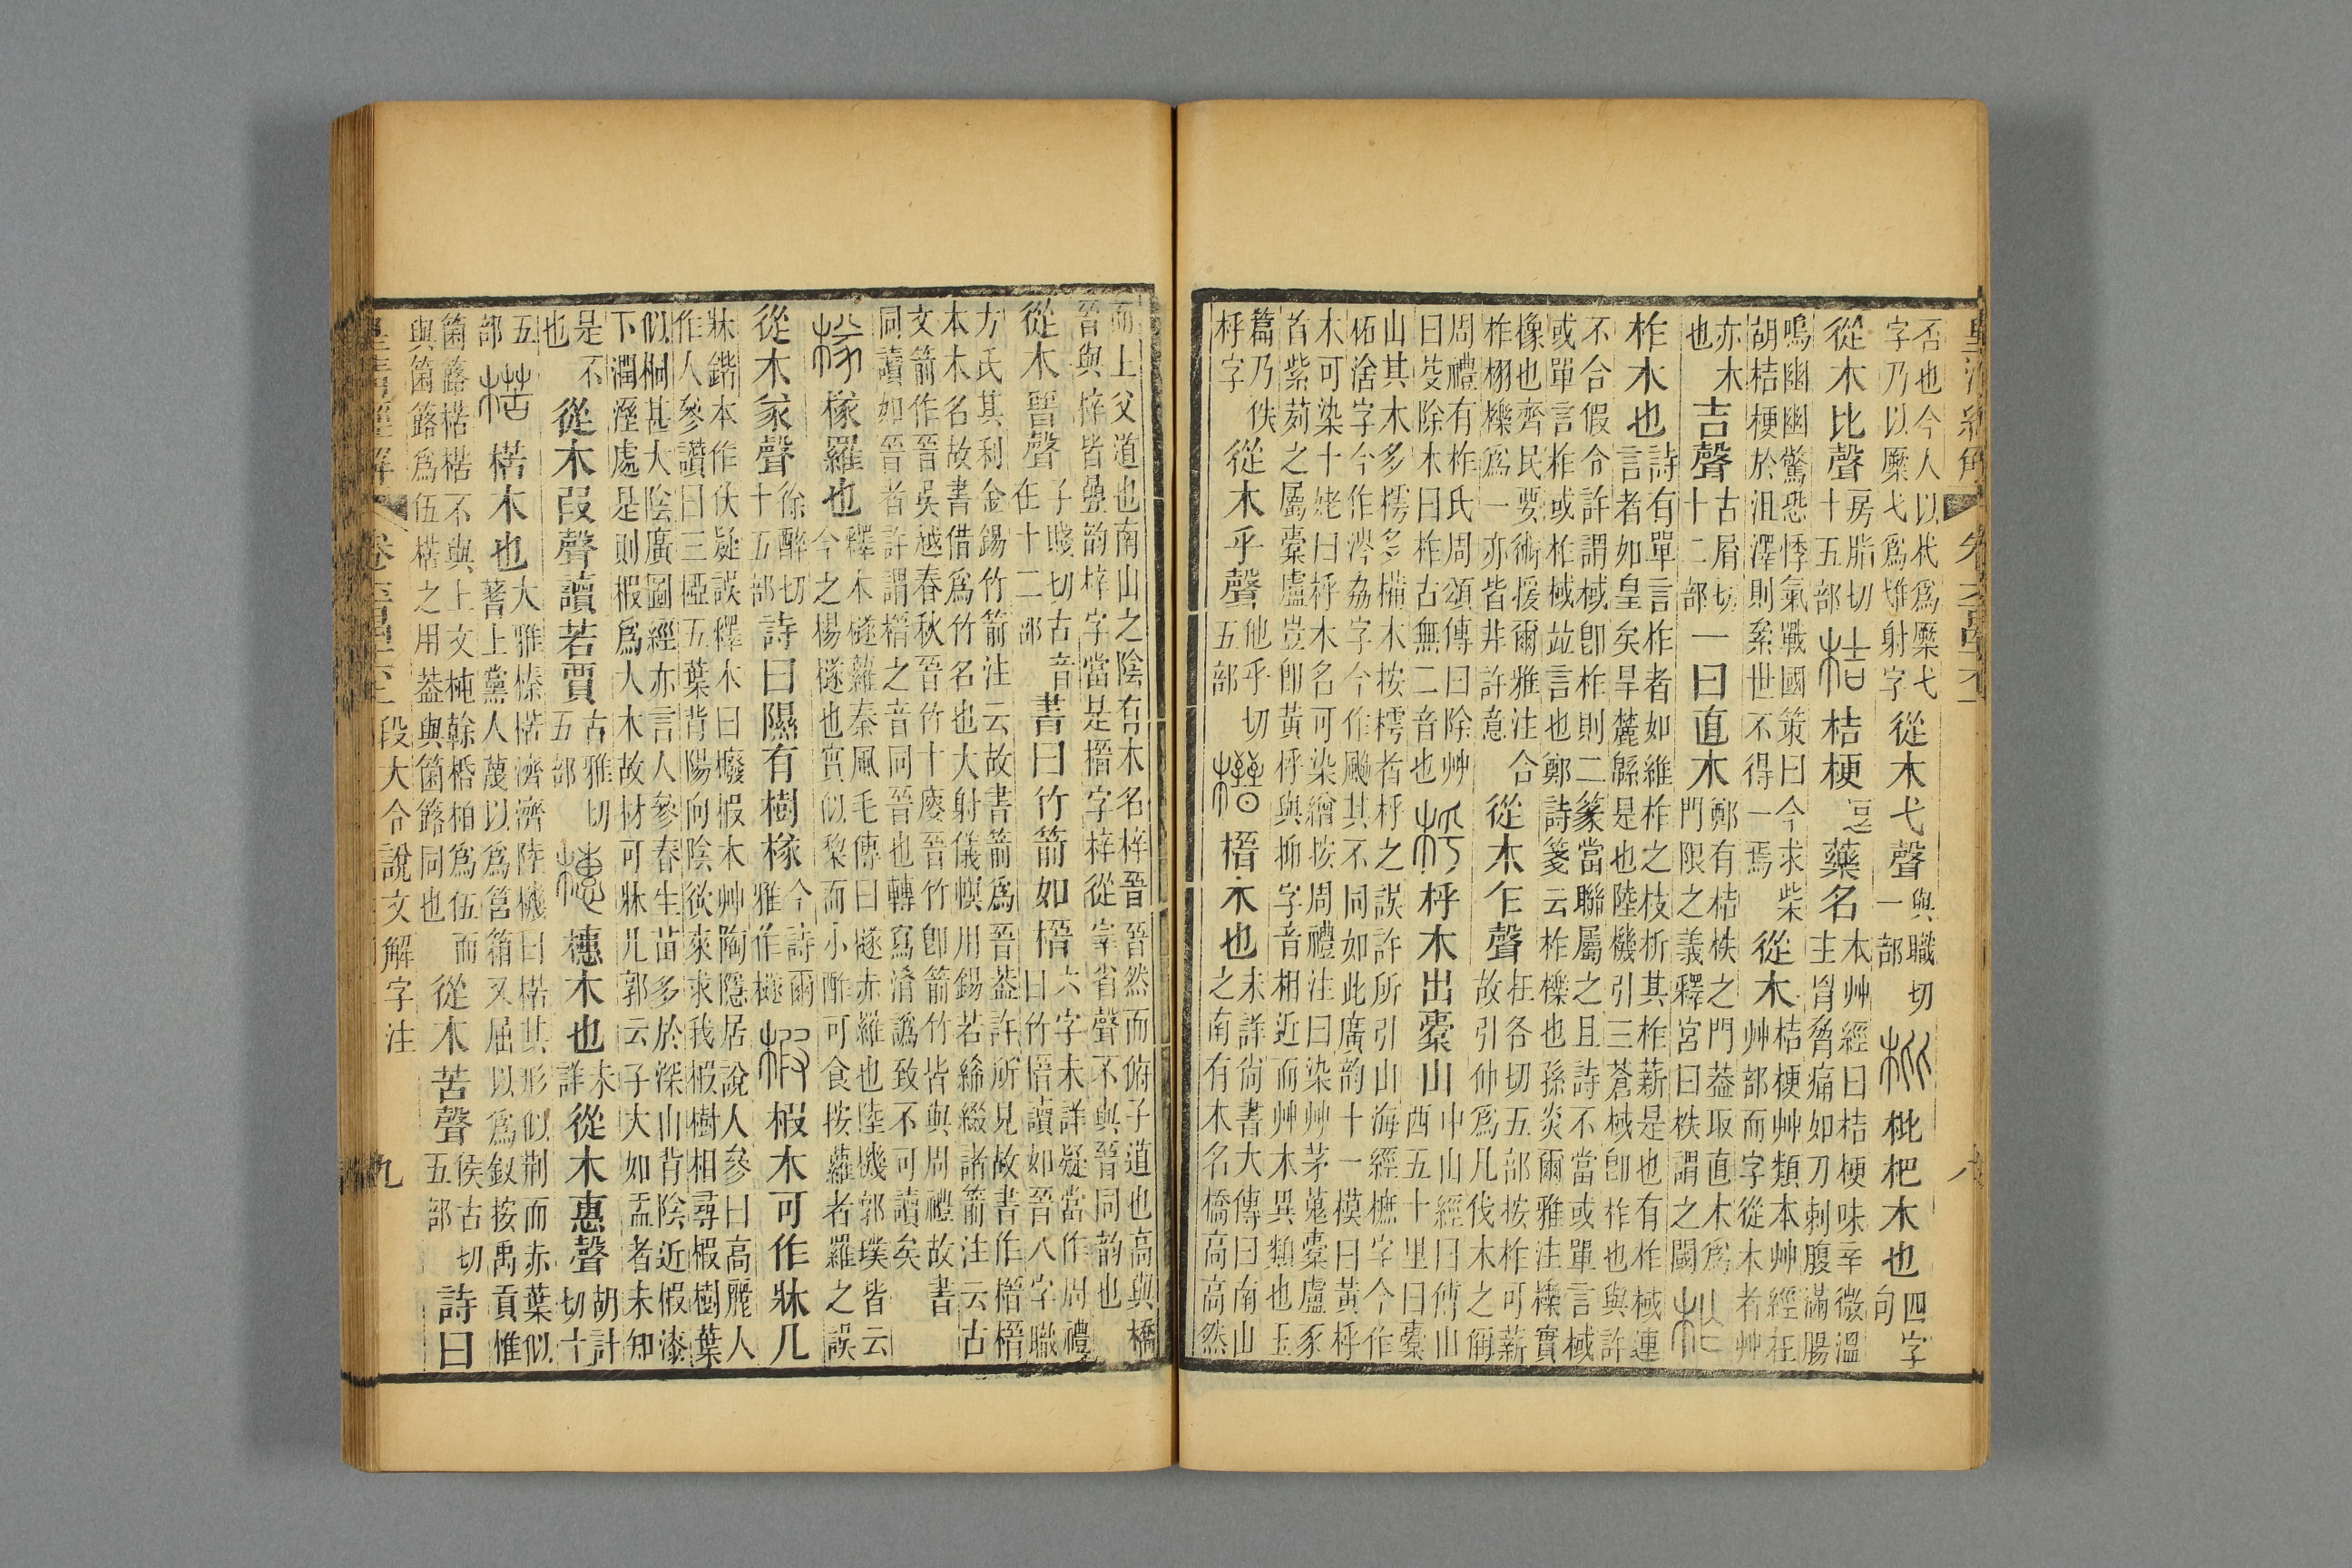 皇清經解 卷六百四十六 八
否也今人以杙爲橜弋
字乃以橜弋爲雉射字
從木弋聲
與職切
一部
枇杷木也
四字
句
從木比聲
房脂切
十五部
桔
桔梗
逗
藥名
本艸經曰桔梗味辛微溫
主胷脅痛如刀刺腹滿腸
鳴幽幽驚恐悸氣戰國策曰今求柴
胡桔梗於沮澤則累世不得一焉
從木
桔梗艸類本艸經在
艸部而字從木者艸
亦木
也
吉聲
古屑切
十二部
一曰直木
鄭有桔柣之門葢取直木爲
門限之義釋宮曰柣謂之閾
柞
柞木也
詩有單言柞者如維柞之枝析其柞薪是也有柞棫連
言者如皇矣旱麓緜是也陸機引三蒼棫卽柞也與許
不合假令許謂棫卽柞則二篆當聯屬之且詩不當或單言棫
或單言柞或柞棫竝言也鄭詩箋云柞櫟也孫炎爾雅注櫟實
橡也齊民要術援爾雅注合
柞栩櫟爲一亦皆非許意
從木乍聲
在各切五部按柞可薪
故引伸爲凡伐木之偁
周禮有柞氏周頌傳曰除艸
曰芟除木曰柞古無二音也
㭔
㭔木出橐山
中山經曰傅山
西五十里曰橐
山其木多樗多楠木按樗者㭔之誤許所引山海經字今作
柘湷字今作涔荔字今作颺其不同如此廣韵十一模曰黃㭔
木可染十姥曰㭔木名可染繒按周禮注曰染艸茅蒐橐盧豕
首紫茢之屬橐盧豈卽黃㭔與抑字音相近而艸木異類也玉
篇乃佚
㭔字
從木乎聲
他乎切
五部
榗
榗木也
未詳尙書大傳曰南山
之南有木名橋高高然
而上父道也南山之陰有木名梓晉晉然而俯子道也高與橋
晉與梓皆疊韵梓字當是榗字梓從宰省聲不與晉同韵也
從木晉聲
子賤切古音
在十二部
書曰竹箭如榗
六字未詳疑當作周禮
曰竹榗讀如晉八字職
方氏其利金錫竹箭注云故書箭爲晉葢許所見故書作榗榗
本木名故書借爲竹名也大射儀幎用錫若絺綴諸箭注云古
文箭作晉吳越春秋晉竹十廋晉竹卽箭竹皆與周禮故書
同讀如晉者許謂榗之音同晉也轉寫淆譌致不可讀矣
羅也
釋木檖蘿秦風毛傳曰檖赤羅也陸機郭璞皆云
今之楊檖也實似棃而小酢可食按蘿者羅之誤
從木㒸聲
徐醉切
十五部
詩曰隰有樹
今詩爾
雅作檖
椵
椵木可作牀几
牀鍇本作伏疑誤釋木曰櫠椵木艸陶隱居說人參曰高麗人
作人參讚曰三椏五葉背陽向陰欲來求我椵樹相尋椵樹葉
似桐甚大陰廣圖經亦言人參春生苗多於深山背陰近椵漆
下潤溼處是則椵爲大木故材可牀几郭云子大如盂者未知
是不
也
從木叚聲讀若賈
古雅切
五部
橞
橞木也
未
詳
從木惠聲
胡計
切十
五
部
楛
楛木也
大雅榛楛濟濟陸機曰楛其形似荆而赤葉似
蓍上黨人蔑以爲筥箱又屈以爲釵按禹貢惟
箘簬楛楛不與上文杶榦栝柏爲伍而
與箘簬爲伍楛之用葢與箘簬同也
從木苦聲
侯古切
五部
詩曰
皇清經解 卷六百四十六 段大令說文解字注 九